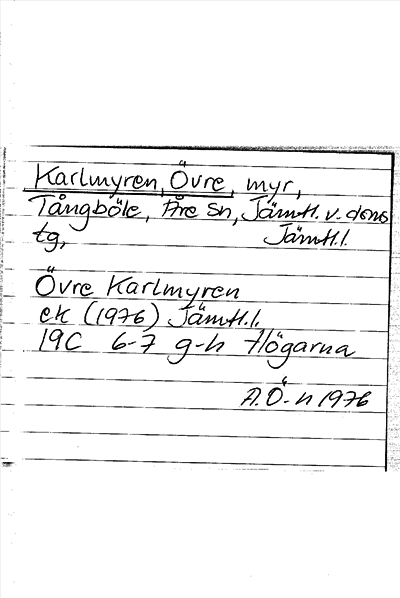 Karlmyren, Övre, myr,
Tångböle, Åre sn, Jämtl. v. doms
tg,                Jämtl.l.
Övre Karlmyren
ek (1976) Jämtl.l.
19C 6-7 g-h Högarna
A.Ö-n 1976